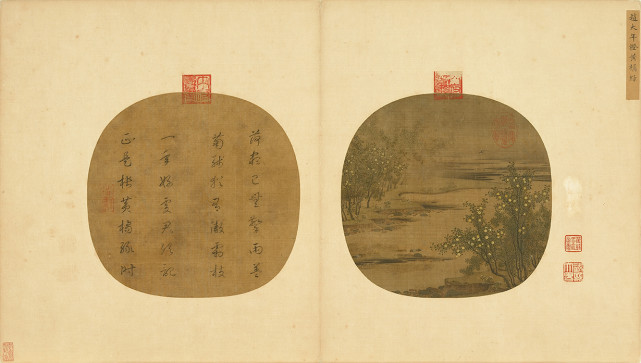 趙大年橙黃橘綠
荷盡已無擎雨蓋
菊殘猶有傲霜枝
一年好處君須記
正是橙黃橘綠時